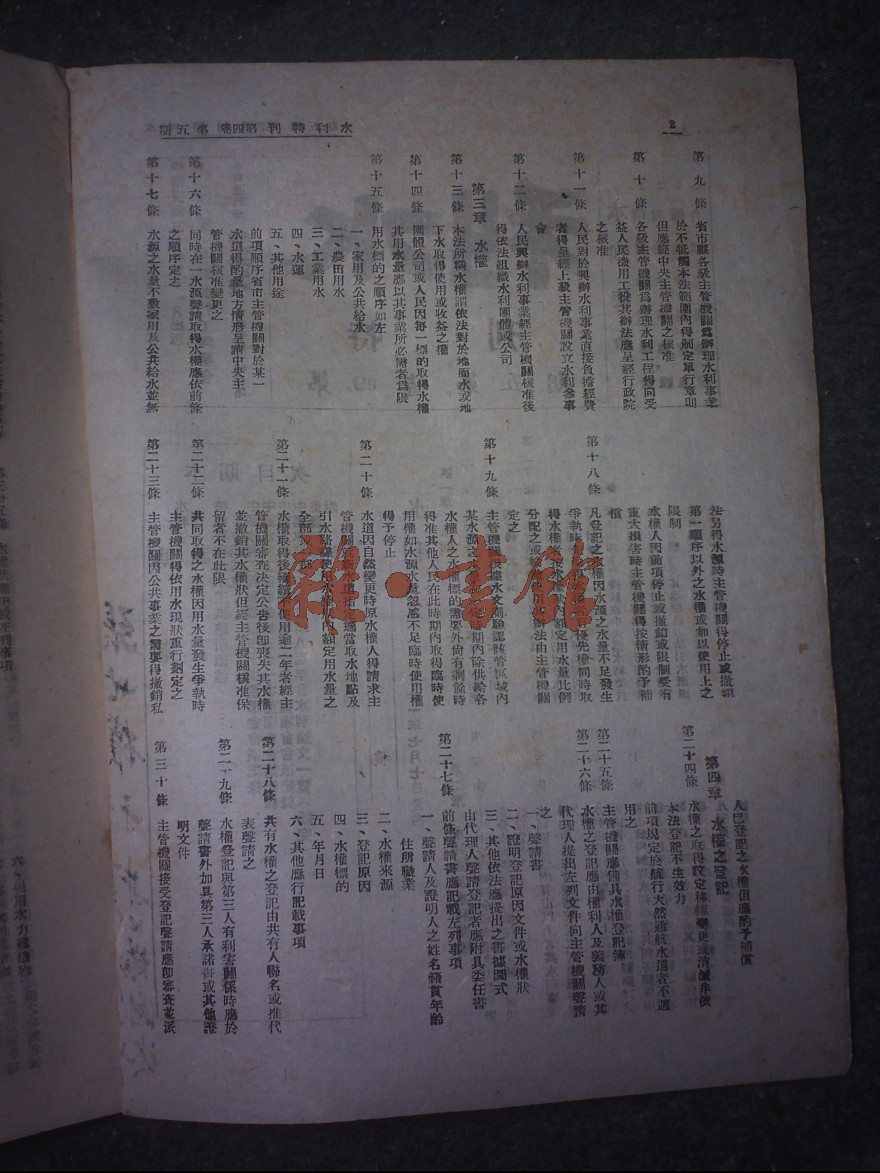 2
水利特刊第四卷第五期
第九條　省市縣各級主管機關爲辦理水利事業
於不牴觸本法範圍內得制定單行章則
但應經中央主管機關之核准
第十條　各級主管機關爲辦理水利工程得向受
益人民徵用工役其辦法應呈經行政院
之核准
第十一條　人民對於興辦水利事業直接負擔經費
者得呈經上級主管機關設立水利參事
會
第十二條　人民興辦水利事業經主管機關核准後
得依法組織水利團體或公司
第三章　水權
第十三條　本法所稱水權謂依法對於地面水或地
下水取得使用或收益之權
第十四條　團體公司或人民因每一標的取得水權
其用水量應以其事業所必需者爲限
第十五條　用水標的之順序如左
一、家用及公共給水
二、農田用水
三、工業用水
四、水運
五、其他用途
前項順序省市主管機關對於某一
水道得酌量地方情形呈請中央主
管機關核准變更之
第十六條　同時在一水源聲請取得水權應依前條
之順序定之
第十七條　水源之水量不敷家用及公共給水並無
法另得水源時主管機關得停止或撤銷
第一順序以外之水權或加以使用上之
限制
水權人因前項停止或撤銷或限制受有
重大損害時主管機關得按情形酌予補
償
第十八條　凡登記之水權因水源之水量不足發生
爭執時
優先權同時取
額定用水量比例
分配之或
辦法由主管機關
定之
第十九條　主管機關根據水文測驗認該管區域內
某水源之
期內除供給各
水權人之水權標的需要外尙有剩餘時
得准其他人民在此時期內取得臨時使
用權如水源水量忽感不足臨時使用權
得予停止
第二十條　水道因自然變更時原水權人得請求主
管機關就新水道指定適當取水地點及
引水路線使用水權狀內額定用水量之
全部或一部
第二十一條　水權取得後繼續停止使用逾二年者經主
管機關審查決定公告後卽喪失其水權
並撤銷其水權狀但經主管機關核准保
留者不在此限
第二十二條　共同取得之水權因用水量發生爭執時
主管機關得依用水現狀重行劃定之
第二十三條　主管機關因公共事業之需要得撤銷私
人已登記之水權但應酌予補償
第四章　水權之登記
第二十四條　水權之取得設定移轉變更或消滅非依
本法登記不生效力
前項規定於航行天然通航水道者不適
用之
第二十五條　主管機關應備具水權登記簿
第二十六條　水權之登記應由權利人及義務人或其
代理人提出左列文件向主管機關聲請
之
一、聲請書
二、證明登記原因文件或水權狀
三、其他依法應提出之書據圖式
由代理人聲請登記者應附具委任書
第二十七條　前條聲請書應記載左列事項
一、聲請人及證明人之姓名籍貫年齡
住所職業
二、水權來源
三、登記原因
四、水權標的
五、年月日
六、其他應行記載事項
第二十八條　共有水權之登記由共有人聯名或推代
表聲請之
第二十九條　水權登記與第三人有利害關係時應於
聲請書外加具第三人承諾書或其他證
明文件
第三十條　主管機關接受登記聲請應卽審查並派
雜·書館